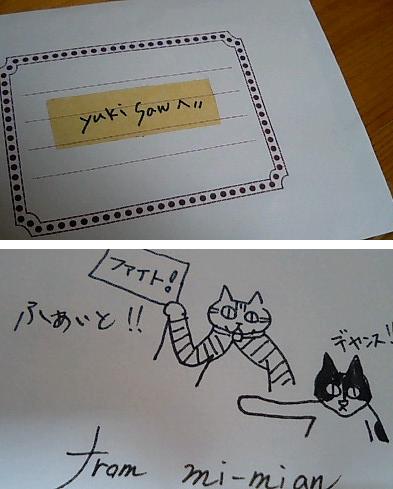 yuki Sawへ!!
ファイト!
ふぁいと!!
デャンス!!
from mi-mian